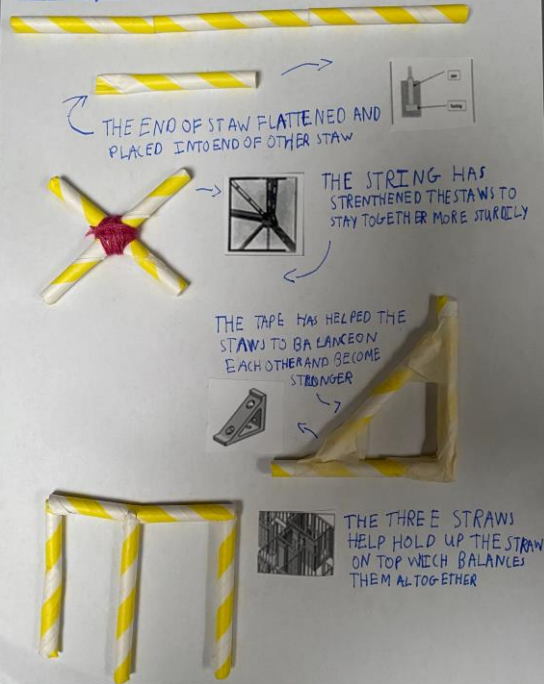 THE END OF STAW FLATTENED AND
PLACED INTO END OF OTHER STAW
THE STRING HAS
STRENTHENED THE STAWS TO
STAY TOGETHER MORE STURDILY
THE TAPE HAS HELPED THE
STAWS TO BALANCE ON
EACH OTHER AND BECOME
STRONGER
THE THREE STRAWS
HELP HOLD UP THE STRAW
ON TOP WICH BALANCES
THEM ALTOGETHER